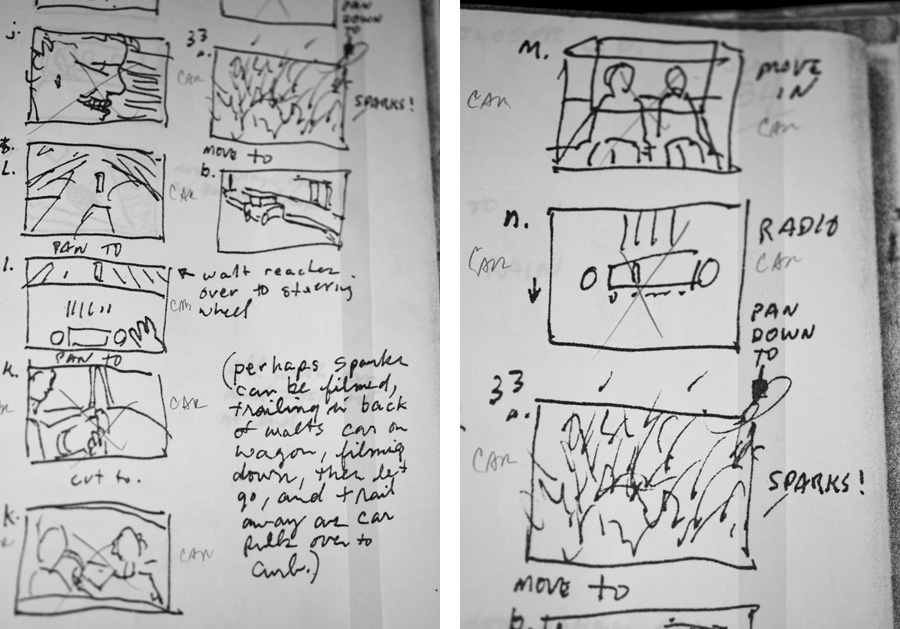 PAN
DOWN
TO
j.
CAR
33
a.
CAR
SPARKS!
MOVE TO
i.
CAR
b.
PAN TO
l.
walt reaches
over to steering
wheel
CAR
PAN TO
k.
CAR
cut to.
k.
CAR
(perhaps sparks
can be filmed,
trailing in back
of walts car on
wagon, filming
down, then let
go, and trail
away as car
pulls over to
curb.)
m.
CAR
MOVE
IN
CAR
n.
CAR
RADIO
CAR
PAN
DOWN
TO
33
a.
CAR
SPARKS!
MOVE TO
b.